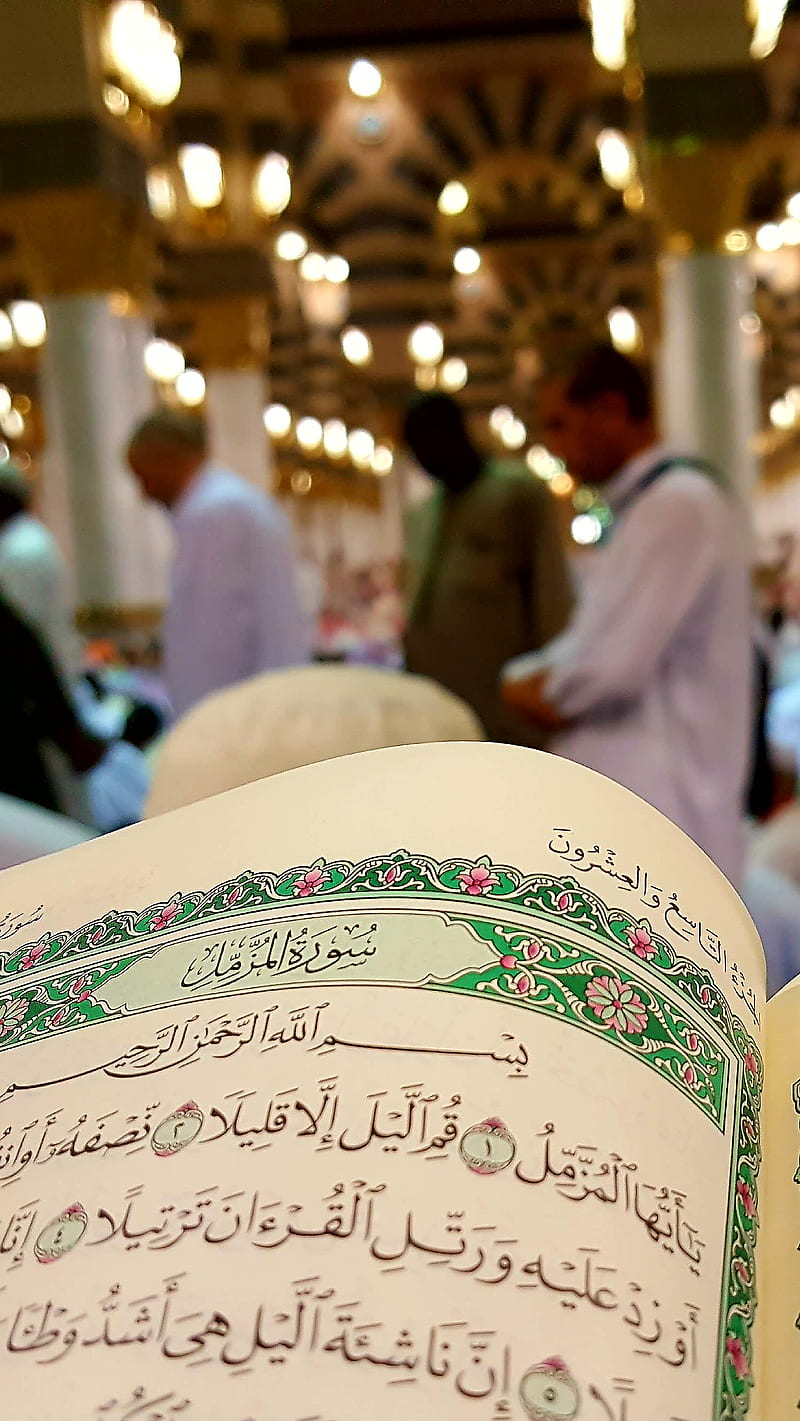 الجُزْءُ التَّاسِعُ وَالعِشْرُونَ
سُورَةُ المُزَّمِّل
بِسْمِ ٱللَّهِ ٱلرَّحْمَٰنِ ٱلرَّحِيمِ
يَٰٓأَيُّهَا ٱلْمُزَّمِّلُ ١ قُمِ ٱلَّيْلَ إِلَّا قَلِيلًا ٢ نِّصْفَهُۥٓ أَوِ
أَوْ زِدْ عَلَيْهِ وَرَتِّلِ ٱلْقُرْءَانَ تَرْتِيلًا ٤ إِنَّا
٥ إِنَّ نَاشِئَةَ ٱلَّيْلِ هِىَ أَشَدُّ وَطْـًٔا